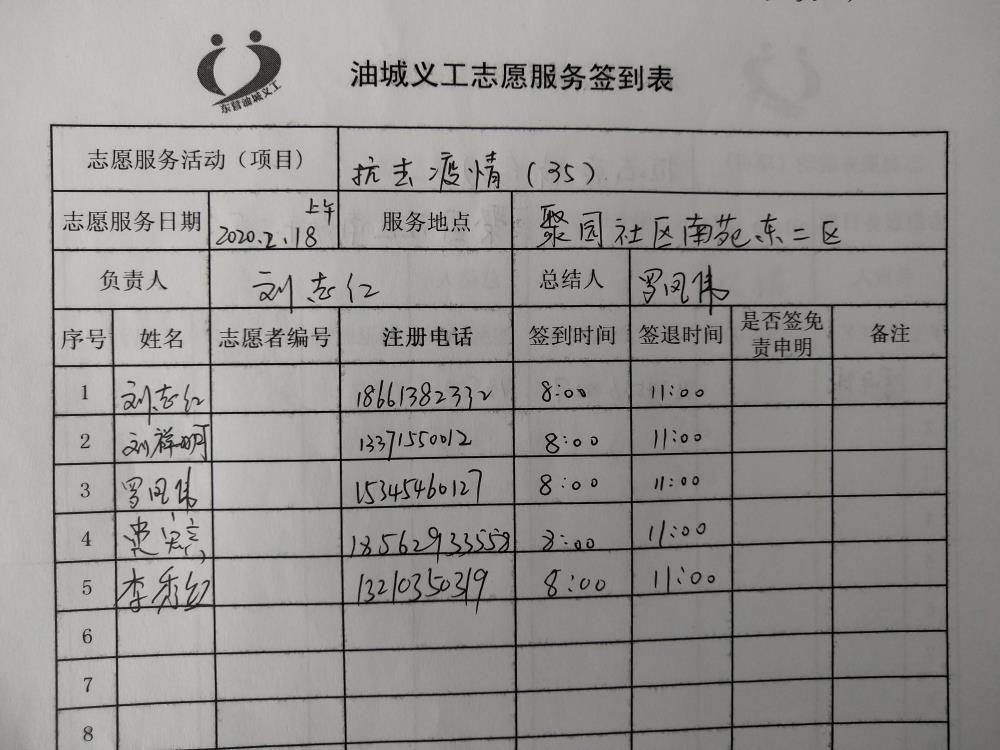 东营油城义工
油城义工志愿服务签到表
志愿服务活动（项目） 抗击疫情（35）
志愿服务日期 2020.2.18 上午 服务地点 聚园社区南苑东二区
负责人 刘志红 总结人 罗凤伟
序号 姓名 志愿者编号 注册电话 签到时间 签退时间 是否签免责申明 备注
1 刘志红 18661382332 8:00 11:00
2 刘祥明 13371550012 8:00 11:00
3 罗凤伟 15345460127 8:00 11:00
4 18562933558 8:00 11:00
5 李秀红 13210350319 8:00 11:00
6
7
8